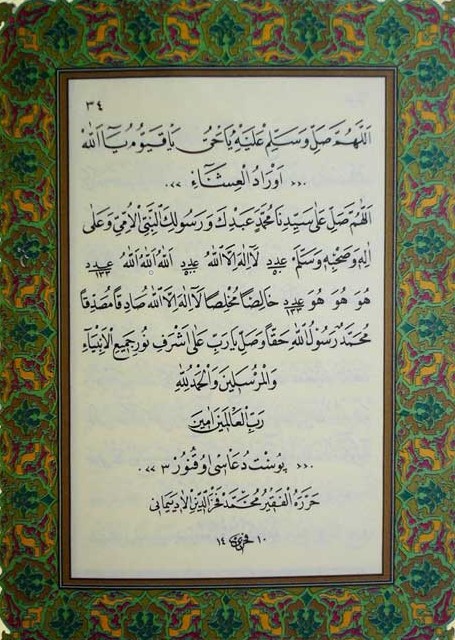 ٣٤
اَللّٰهُمَّ صَلِّ وَسَلِّمْ عَلَيْهِ يَاحَىُّ يَاقَيُّومُ يَآ اَللّٰهُ
اَوْرَادُ الْعِشَآءِ
اَللّٰهُمَّ صَلِّ عَلٰى سَيِّدِنَا مُحَمَّدٍ عَبْدِكَ وَرَسُولِكَ النَّبِىِّ الْاُمِّىِّ وَعَلٰى
اٰلِهِ وَصَحْبِهِ وَسَلِّمْ عدد لَآ اِلٰهَ اِلَّا اللّٰهُ عدد اَللّٰهُ اَللّٰهُ اَللّٰهُ عدد ١٣٣
هُوَ هُوَ هُوَ عدد ١٣٣ خَالِصًا مُخْلِصًا لَآ اِلٰهَ اِلَّا اللّٰهُ صَادِقًا مُصَدِّقًا
مُحَمَّدٌ رَسُولُ اللّٰهِ حَقًّا وَصَلِّ يَارَبِّ عَلٰى اَشْرَفِ نُورِ جَمِيعِ الْاَنْبِيَآءِ
وَالْمُرْسَلِينَ وَالْحَمْدُ لِلّٰهِ
رَبِّ الْعَالَمِينَ اٰمِينَ
پوست دعاسى اوقنور ٣
حَرَّرَهُ الْفَقِيرُ مُحَمَّدْ فَخْرُ الدِّينِ
١٤ ١٠